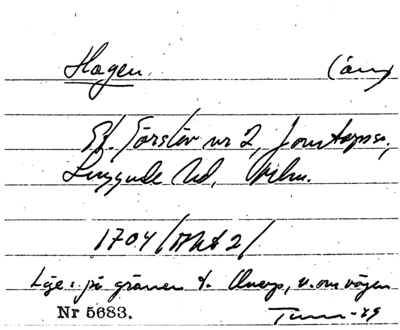 Hagen. (äng)
St. Torslöv nr 2, Jonstorps s.,
Luggude hd, Mlm.
1704 / Akt 2 /
Läge: på gränsen t. Unerp, v. om vägen
Nr 5683.